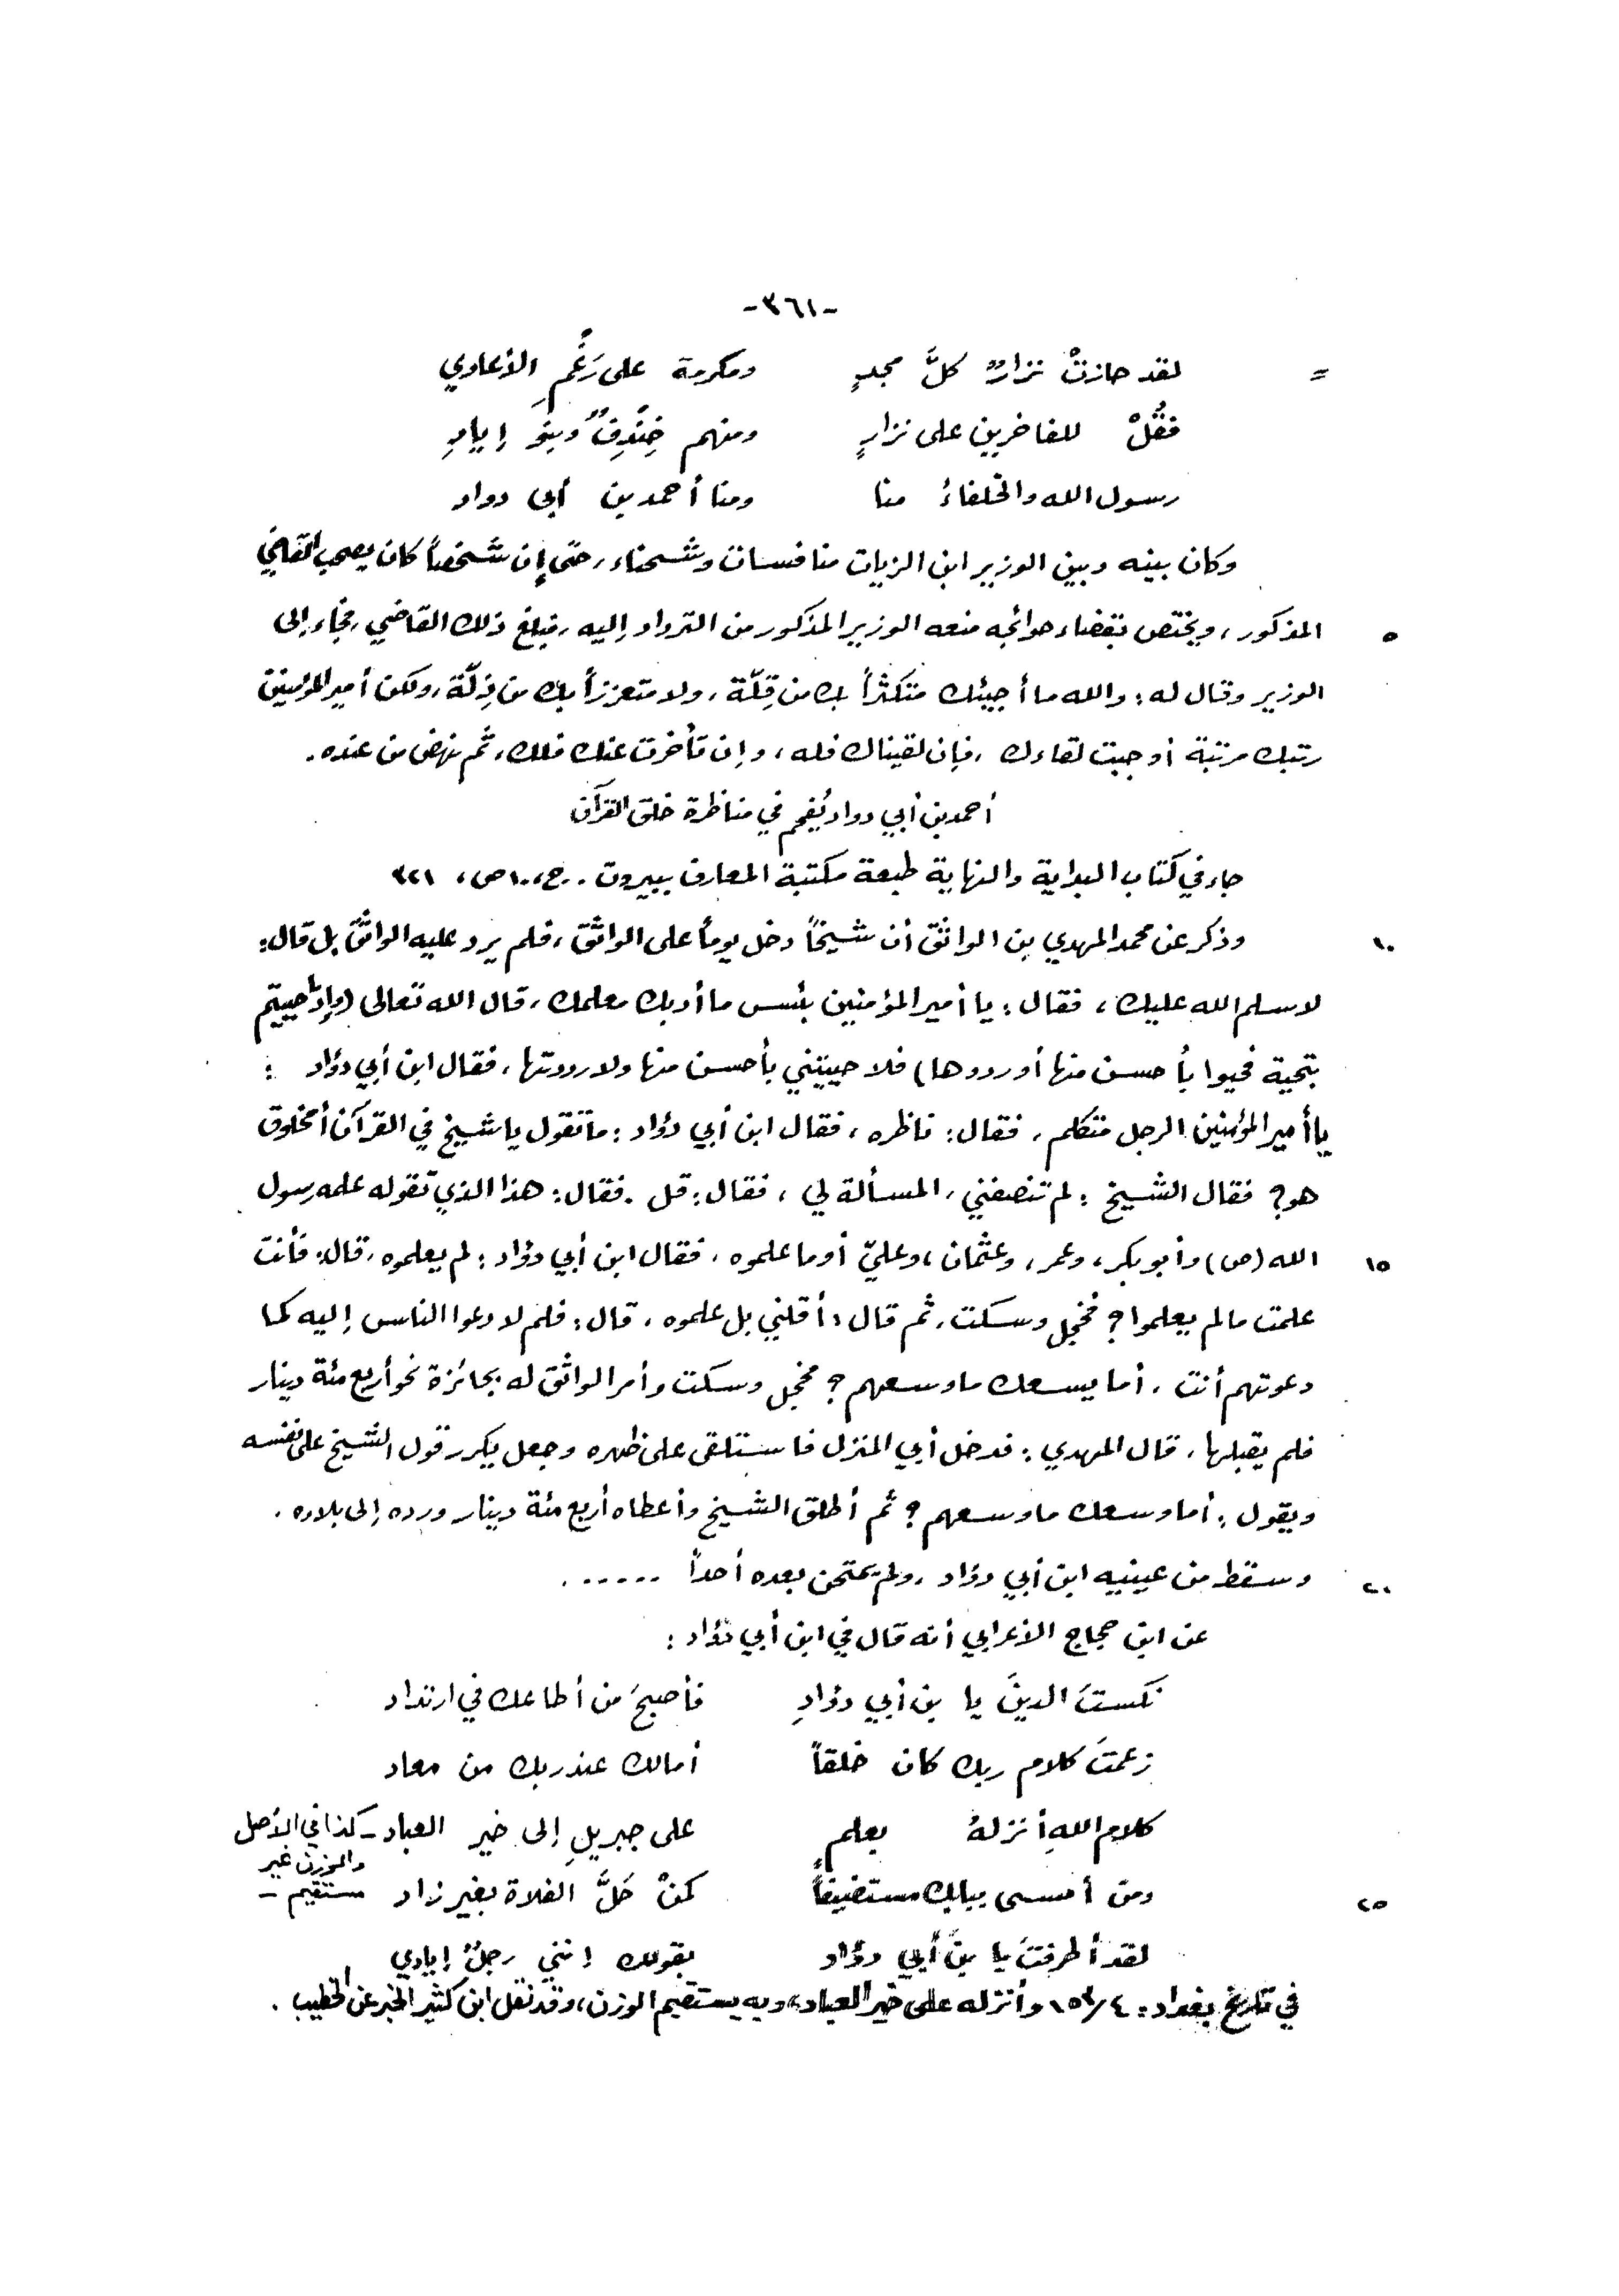 -٣٦١-
= لقد حازتْ نزارٌ كلَّ مجدٍ ومكرمة على رَغْمِ الأعادي
فقُلْ للفاخرين على نزارٍ ومنهم خِنْدِفٌ وبنو إيادِ
رسول الله والخلفاءُ منا ومنا أحمد بن أبي دواد
وكان بينه وبين الوزير ابن الزيات منافسات وشحناء، حتى إن شخصاً كان يصحب القاضي
٥ المذكور، ويختص بقضاء حوائجه منعه الوزير المذكور من الترداد إليه، فبلغ ذلك القاضي، فجاء إلى
الوزير وقال له: والله ما أجيئك متكثراً بك من قِلّة، ولا متعززاً بك من ذِلّة، ولكن أمير المؤمنين
رتبك مرتبة أوجبت لقاءك، فإن لقيناك فله، وإن تأخرت عنك فلك، ثم نهض من عنده.
أحمد بن أبي دواد يُفحم في مناظرة خلق القرآن
جاء في كتاب البداية والنهاية طبعة مكتبة المعارف ببيروت .. ج، ١٠، ص، ٣٢١
١٠ وذكر عن محمد المهدي بن الواثق أن شيخاً دخل يوماً على الواثق، فلم يرد عليه الواثق بل قال:
لا سلم الله عليك، فقال: يا أمير المؤمنين بئس ما أدبك معلمك، قال الله تعالى (وإذا حييتم
بتحية فحيوا بأحسن منها أو ردوها) فلا حييتني بأحسن منها ولا رددتها، فقال ابن أبي دؤاد :
يا أمير المؤمنين الرجل متكلم، فقال: ناظره، فقال ابن أبي دؤاد: ما تقول يا شيخ في القرآن أمخلوق
هو؟ فقال الشيخ: لم تنصفني، المسألة لي، فقال: قل. فقال: هذا الذي تقوله علمه رسول
١٥ الله (ص) وأبو بكر، وعمر، وعثمان، وعليّ أو ما علموه، فقال ابن أبي دؤاد: لم يعلموه، قال: فأنت
علمت ما لم يعلموا؟ فخجل وسكت، ثم قال: أقلني بل علموه، قال: فلم لا دعوا الناس إليه كما
دعوتهم أنت، أما يسعك ما وسعهم؟ فخجل وسكت وأمر الواثق له بجائزة نحو أربع مئة دينار
فلم يقبلها، قال المهدي: فدخل أبي المنزل فاستلقى على ظهره وجعل يكرر قول الشيخ على نفسه
ويقول: أما وسعك ما وسعهم؟ ثم أطلق الشيخ وأعطاه أربع مئة دينار ورده إلى بلاده.
٢٠ وسقط من عينيه ابن أبي دؤاد، ولم يمتحن بعده أحداً ......
عن ابن حجاج الأعرابي أنه قال في ابن أبي دؤاد:
نكستَ الدينَ يا بن أبي دؤادِ فأصبحَ من أطاعك في ارتداد
زعمتَ كلام ربك كان خلقاً أمالك عند ربك من معاد
كلام اللهِ أنزلهُ بعلمٍ على جبريلِ إلى خير العباد - كذا في الأصل
والوزن غير
٢٥ ومن أمسى ببابك مستضيفاً كمنْ حَلَّ الفلاة بغير زاد مستقيم -
لقد أطرفتَ يا بنَ أبي دؤاد بقولك إنني رجلٌ إيادي
في تاريخ بغداد: ١٥٣/٤ وأنزله على خير العباد» وبه يستقيم الوزن، وقد نقل ابن كثير الخبر عن الخطيب.